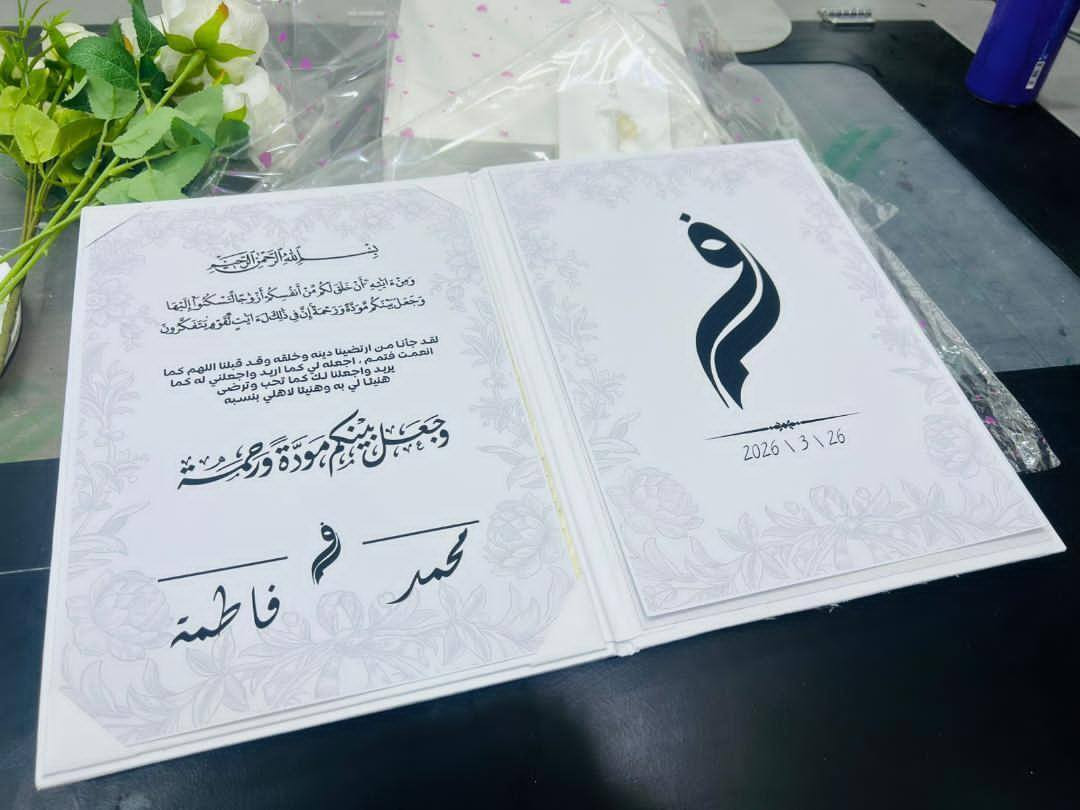 بسم الله الرحمن الرحيم
وَمِنْ ءَايَٰتِهِۦٓ أَنْ خَلَقَ لَكُم مِّنْ أَنفُسِكُمْ أَزْوَٰجًا لِّتَسْكُنُوٓا۟ إِلَيْهَا
وَجَعَلَ بَيْنَكُم مَّوَدَّةً وَرَحْمَةً إِنَّ فِى ذَٰلِكَ لَءَايَٰتٍ لِّقَوْمٍ يَتَفَكَّرُونَ
لقد جانا من ارتضينا دينه وخلقه وقد قبلنا اللهم كما
انعمت فتمم ، اجعله لي كما اريد واجعلني له كما
يريد واجعلنا لك كما تحب وترضى
هنيئا لي به وهنيئا لاهلي بنسبه
وَجَعَلَ بَيْنَكُم مَوَدَّةً وَرَحْمَة
محمد
فم
فاطمة
فم
2026 \ 3 \ 26